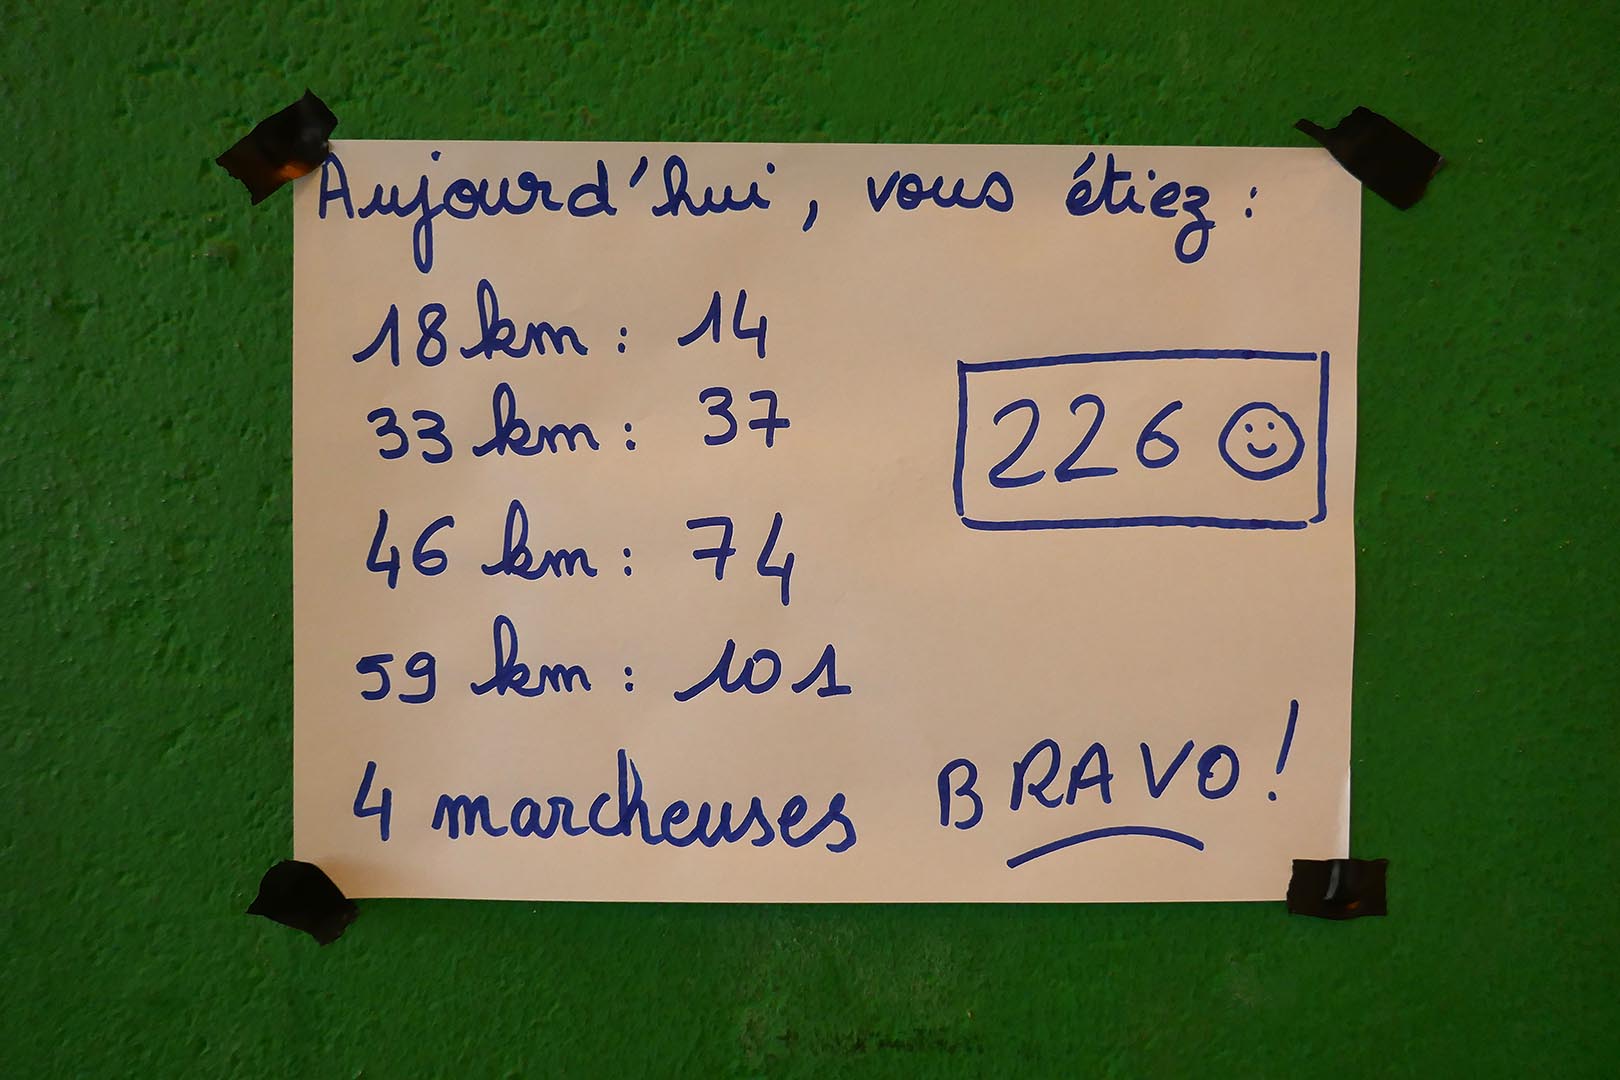 Aujourd'hui, vous étiez :
18 km : 14
33 km : 37
46 km : 74
59 km : 101
4 marcheuses
226
BRAVO !